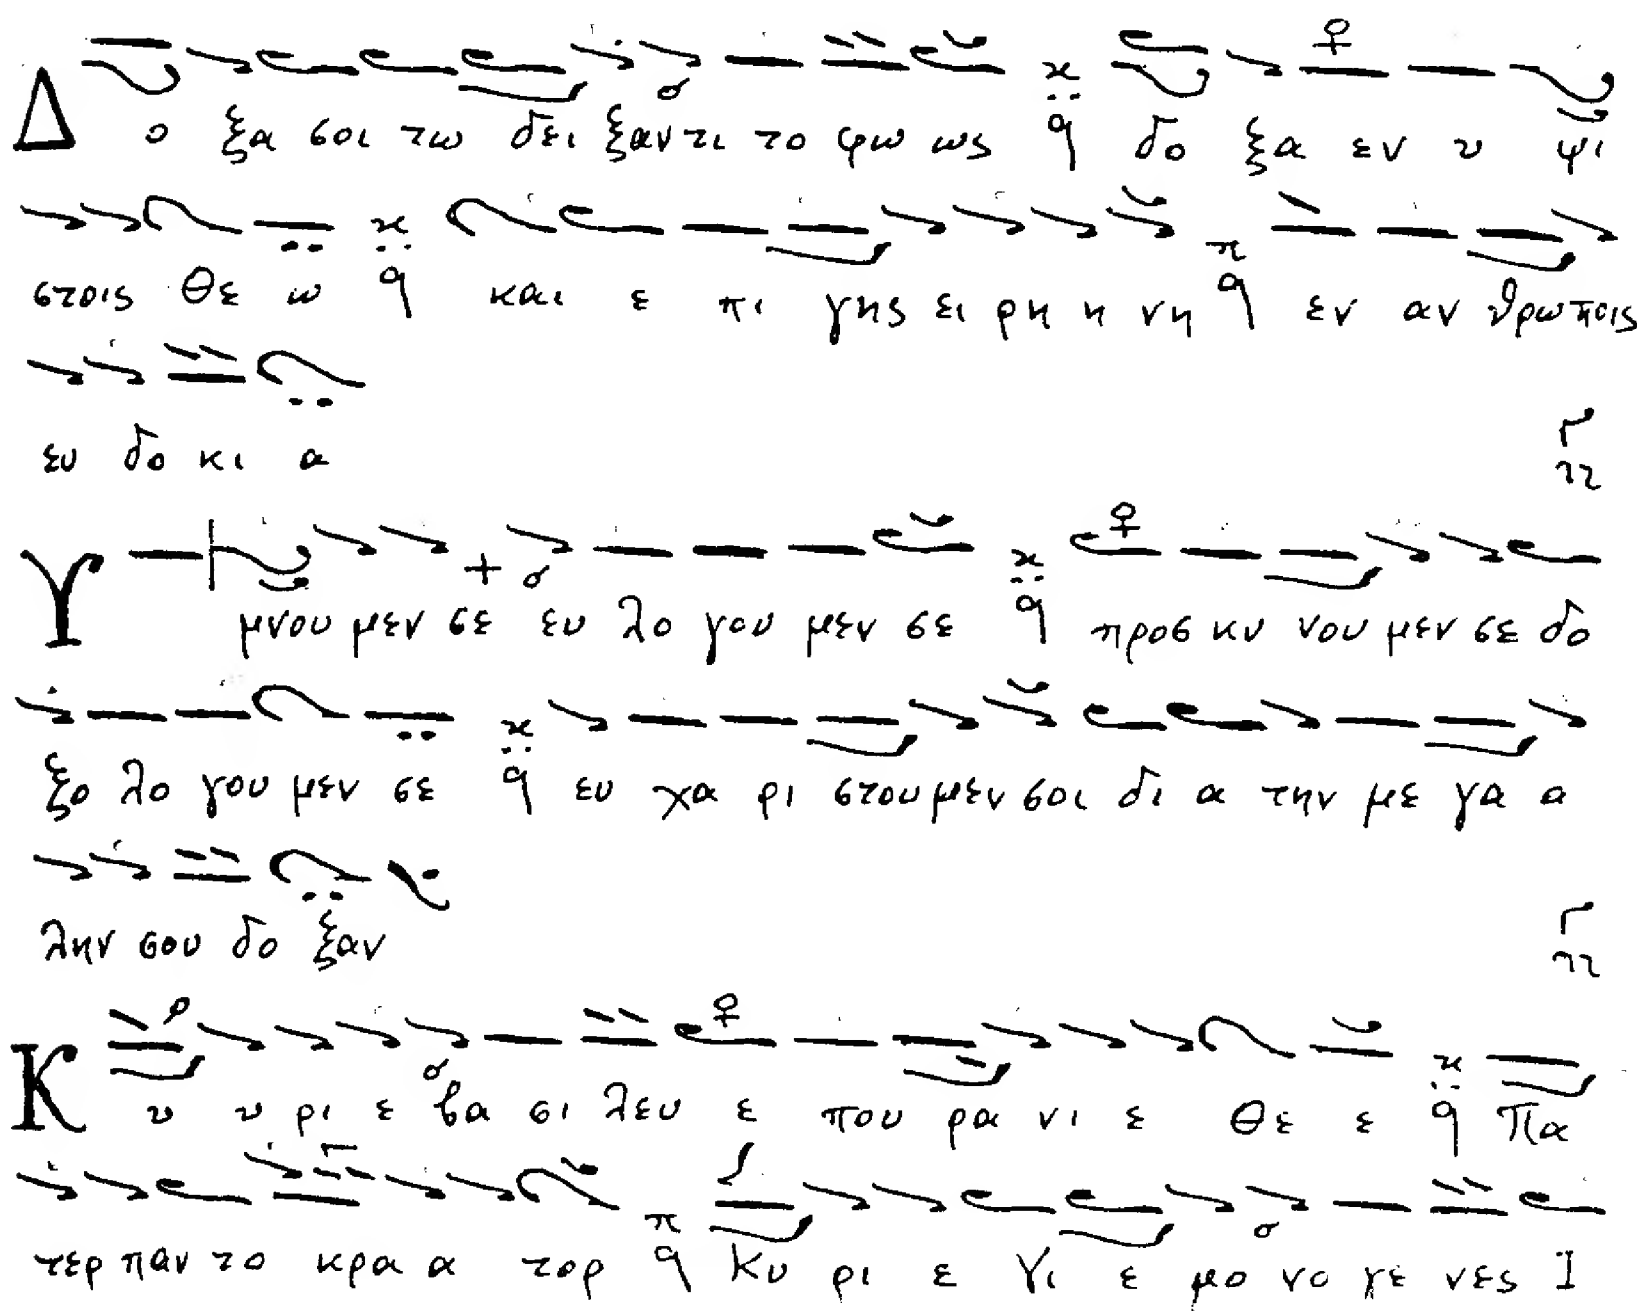 Δ ο ξα σοι τω δει ξαν τι το φω ως δο ξα εν υ ψι
στοις Θε ω και ε πι γης ει ρη η νη εν αν θρω ποις
ευ δο κι α
Υ μνου μεν σε ευ λο γου μεν σε προσ κυ νου μεν σε δο
ξο λο γου μεν σε ευ χα ρι στου μεν σοι δι α την με γα α
λην σου δο ξαν
Κ υ υ ρι ε βα σι λευ ε που ρα νι ε Θε ε Πα
τερ παν το κρα α τορ Κυ ρι ε Υι ε μο νο γε νες Ι